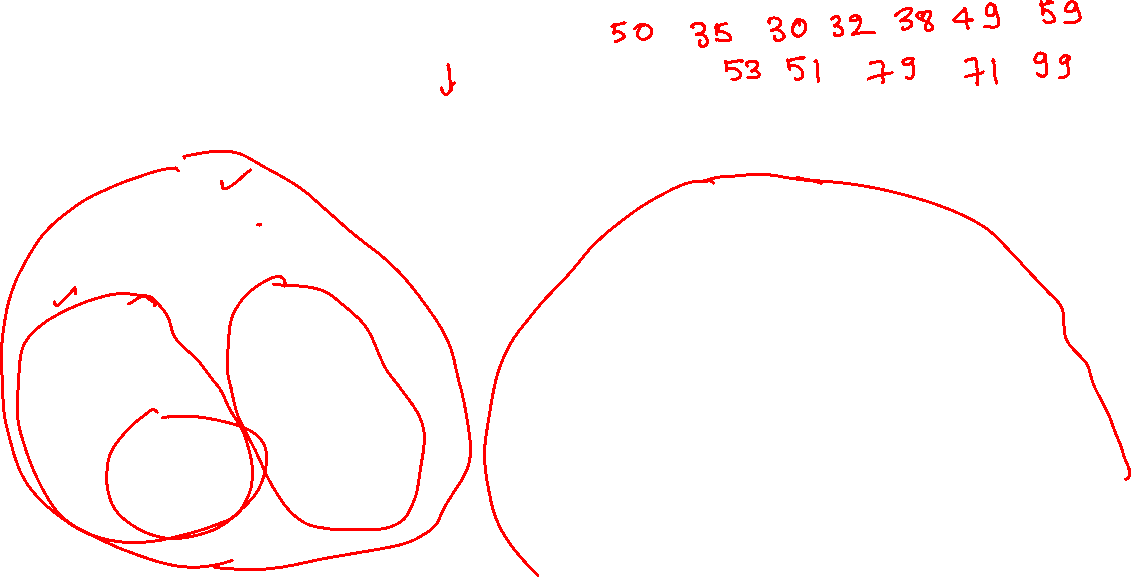 50 35 30 32 38 49 59
53 51 79 71 99